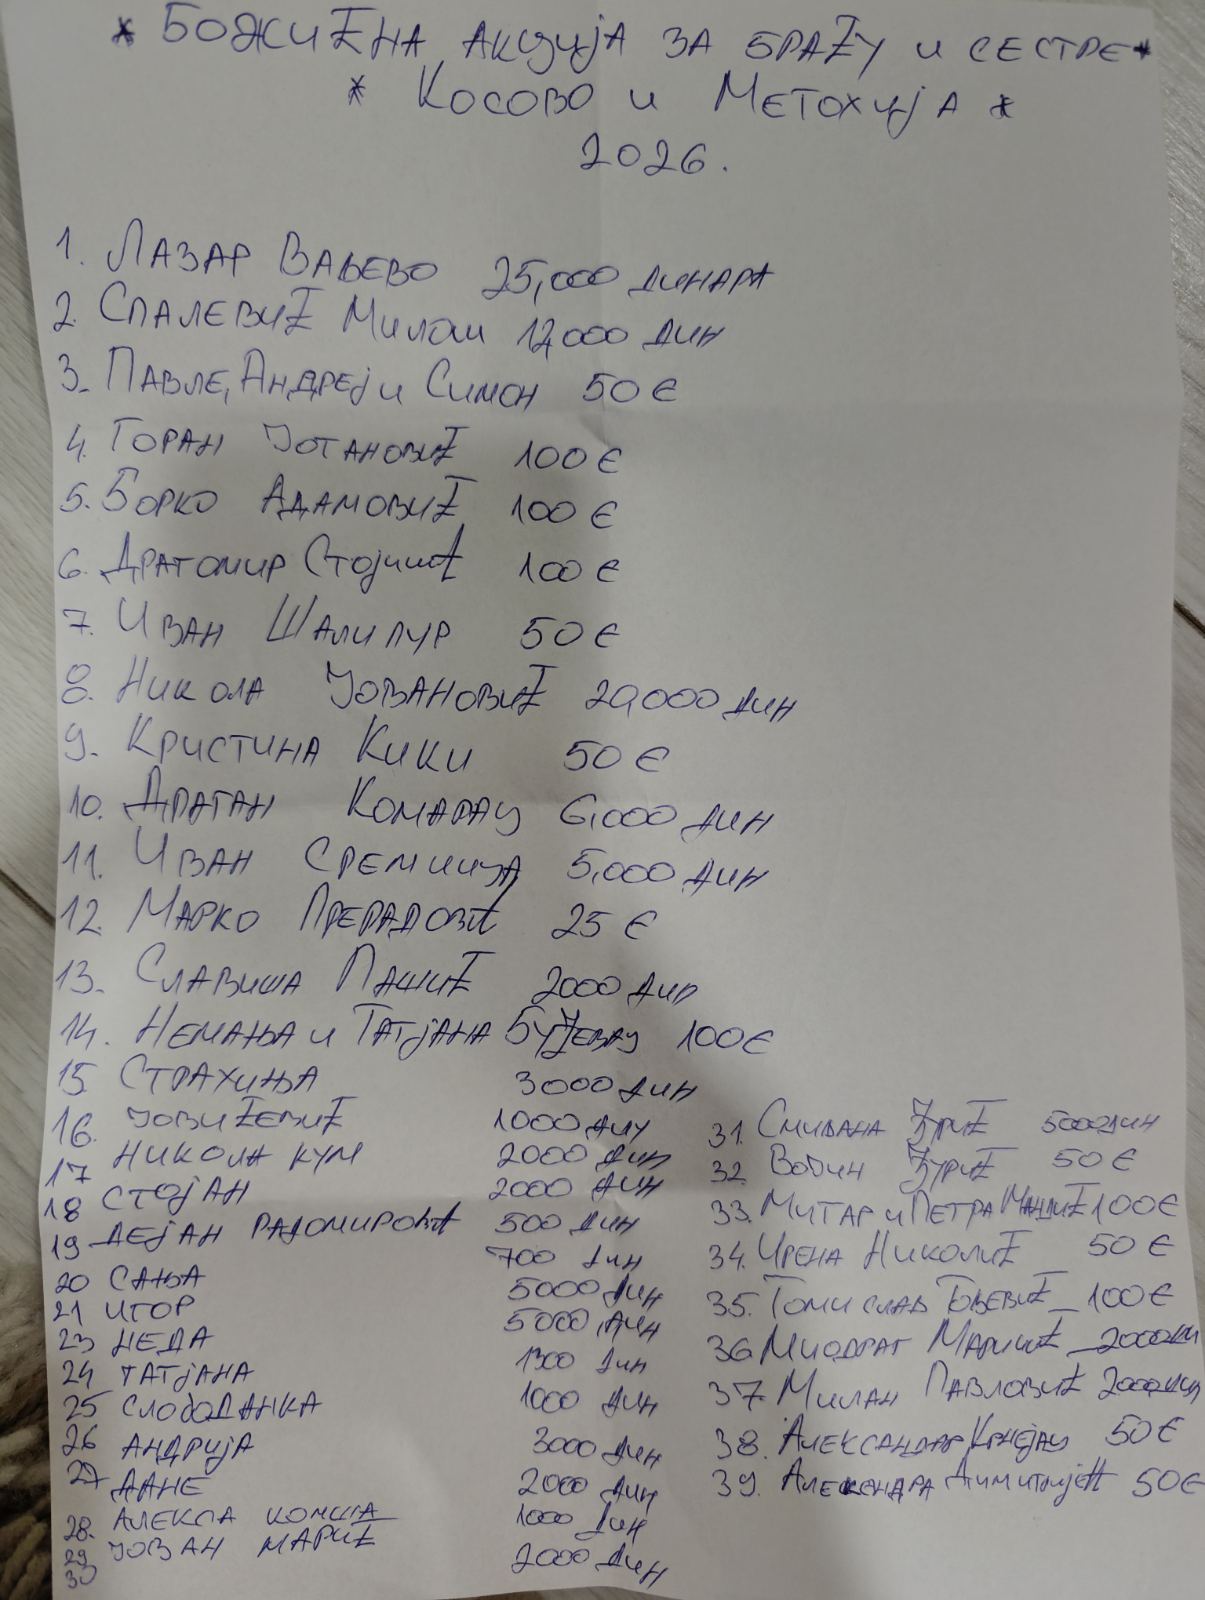 * БОЖИЋНА АКЦИЈА ЗА БРАЋУ И СЕСТРЕ *
* КОСОВО И МЕТОХИЈА *
2026.
1. ЛАЗАР ВАЉЕВО 25,000 ДИНАРА
2. СПАЛЕВИЋ МИЛОШ 12,000 ДИН
3. ПАВЛЕ, АНДРЕЈ И СИМОН 50 €
4. ГОРАН ЈОТАНОВИЋ 100 €
5. БОРКО АДАМОВИЋ 100 €
6. ДРАГОМИР СТОЈШИЋ 100 €
7. ИВАН ШАЛИПУР 50 €
8. НИКОЛА ЈОВАНОВИЋ 20,000 ДИН
9. КРИСТИНА КИКИ 50 €
10. ДРАГАН КОМАРАЦ 6,000 ДИН
11. ИВАН СРЕМЧИЦА 5,000 ДИН
12. МАРКО ПРЕРАДОВИЋ 25 €
13. СЛАВИША ПАШИЋ 2000 ДИН
14. НЕМАЊА И ТАТЈАНА 100 €
15 СТРАХИЊА 3000 ДИН
16. ЈОВИЋЕВИЋ 1000 ДИН
17 НИКОЛА КУМ 2000 ДИН
18 СТОЈАН 2000 ДИН
19 ДЕЈАН РАДОМИРОВИЋ 500 ДИН
700 ДИН
20 САЊА 5000 ДИН
21 ИГОР 5000 ДИН
23 НЕДА 1300 ДИН
24 ТАТЈАНА 1000 ДИН
25 СЛОБОДАНКА 3000 ДИН
26 АНДРИЈА 2000 ДИН
27 ДАНЕ 1000 ДИН
28. АЛЕКСА КОМША 2000 ДИН
29 ЈОВАН МАРИЋ
30
31. СМИЉАНА ЂУРИЋ 5000 ДИН
32. ВОЈИН ЂУРИЋ 50 €
33. МИТАР И ПЕТРА МАНДИЋ 100 €
34. ИРЕНА НИКОЛИЋ 50 €
35. ТОМИСЛАВ 100 €
36 МИОДРАГ 2000 ДИН
37. МИЛАН ПАВЛОВИЋ 2000 ДИН
38. АЛЕКСАНДАР КРНЕЈАЦ 50 €
39. АЛЕКСНДРА ДИМИТРИЈЕВИЋ 50 €